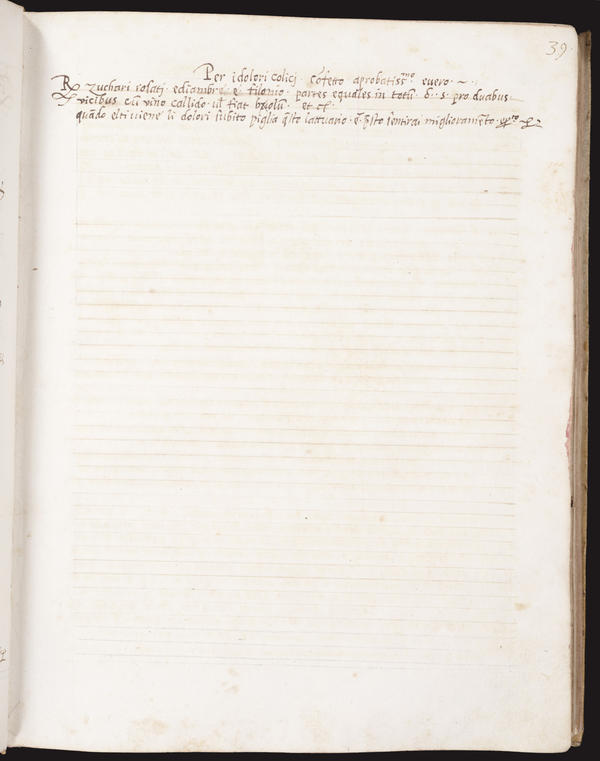 39.
Per i dolori colici · cōfetto aprobatissᵐᵒ evero · ~ ·
℞ zuchari rosatj · ediambrē · ē filonio · partes equales in totū · ℥ · s · pro duabus
vicibus cū vino callido · ul̄ fiat bolū · et cꝭ
quādo elti viene li dolori subito piglia q̄sto lattuario · ē p̄sto sentirai miglioramēto ·